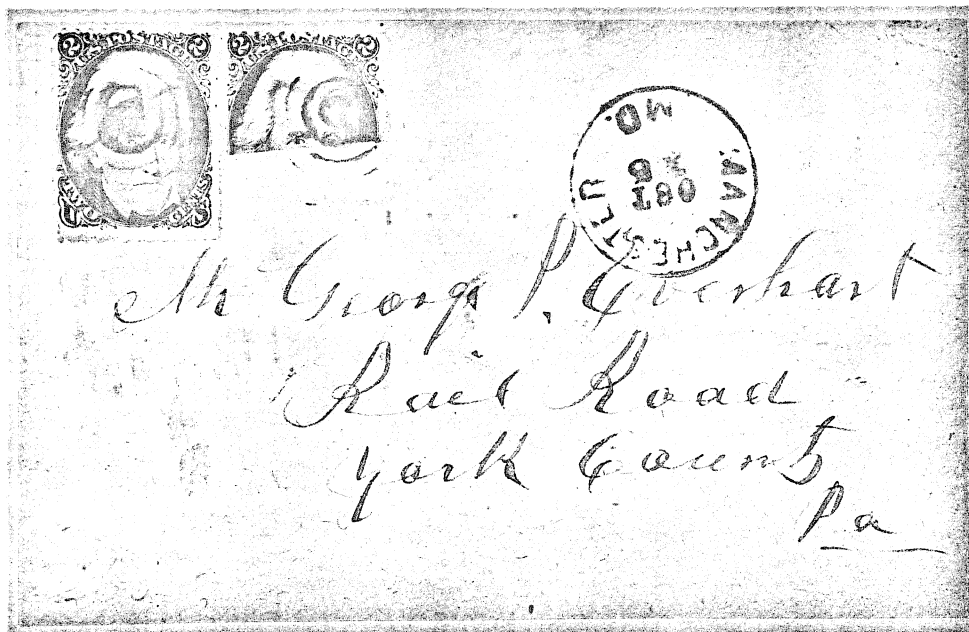 2 2
2
U
MANCHESTER
MD.
OCT
8
Mr George P. Everhart
Rail Road
York County
Pa